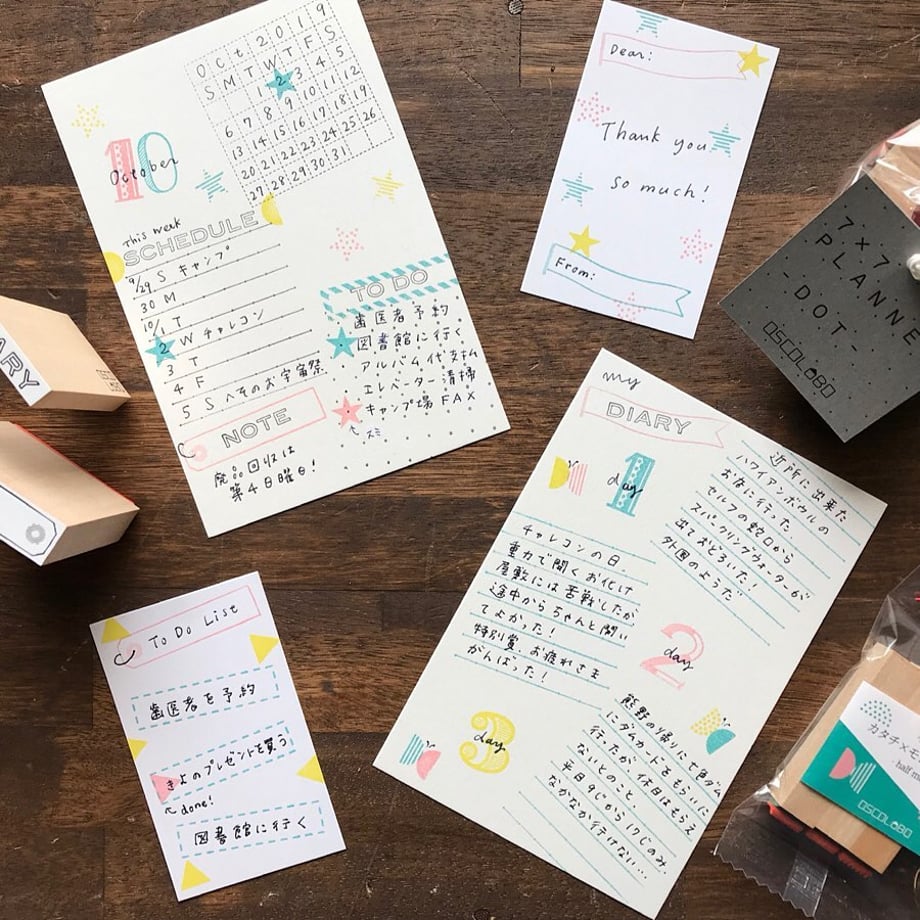 Oct 2019
S M T W T F S
1 2 3 4 5
6 7 8 9 10 11 12
13 14 15 16 17 18 19
20 21 22 23 24 25 26
27 28 29 30 31
10
October
This week
SCHEDULE
9/29 S キャンプ
30 M
10/1 T
2 W チャレコン
3 T
4 F
5 S へそのお宇宙祭
TO DO
歯医者予約
図書館に行く
アルバム代支払
エレベーター清掃
キャンプ場 FAX
スミ
NOTE
廃品回収は
第4日曜日!
Dear:
Thank you
so much!
From:
7×7
PLANNE
- DOT -
OSCOLABO
ARY
my
DIARY
1
day
チャレコンの日
重力で聞くお化け
屋敷には苦戦したが
途中からちゃんと聞い
てよかった!
特別賞、お疲れさま
がんばった!
近所に出来た
ハワイアンボウルの
お店に行った
セルフの蛇口から
スパークリングウォーターが
出ておどろいた!
外国のようだ
2
day
熊野の帰りに七色ダム
にダムカードをもらいに
行ったが、休日はもらえ
ないとのこと、
平日9じから17じのみ.
なかなか行けない...
3
day
To Do List
歯医者を予約
きよのプレゼントを買う
done!
図書館に行く
カタチ×モ
- half m
OSCOLABO